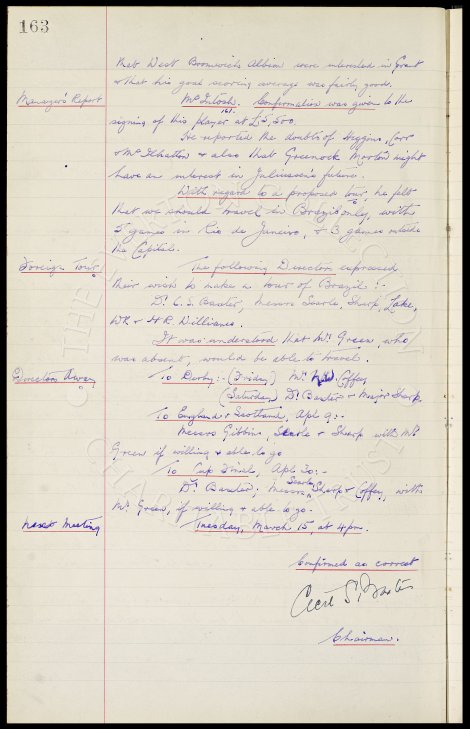 163
that West Bromwich Albion were interested in Grant
& that his goal scoring average was fairly good.
Manager's Report McIntosh. Confirmation was given to the
161.
signing of this player at £5,500.
He reported the doubts of Higgins, Carr
& McIlhatton & also that Greenock Morton might
have an interest in Juliussen's future.
With regard to a proposed tour, he felt
that we should travel in Brazil only, with
5 games in Rio de Janeiro, & 3 games outside
the Capital.
Foreign Tour The following Directors expressed
their wish to make a tour of Brazil :-
Dr. C. S. Baxter, Messrs Searle, Sharp, Lake,
W.R. & H.R. Williams.
It was understood that Mr Green, who
was absent, would be able to travel.
Directors Away To Derby :- (Friday) Mr Coffey,
(Saturday) Dr Baxter & Major Sharp.
To England v Scotland, Apl 9 :-
Messrs Gibbins, Searle & Sharp with Mr
Green if willing & able to go
To Cup Final, Apl 30 :-
Searle
Dr Baxter, Messrs Sharp & Coffey, with
Mr Green, if willing & able to go.
Next Meeting Tuesday, March 15, at 4pm.
Confirmed as correct
Cecil S. Baxter
Chairman.